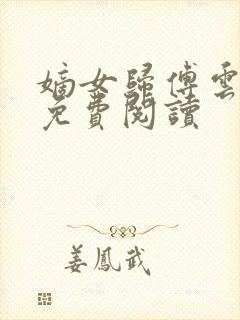 嫡女歸傅雲
免費閱讀
姜鳳武